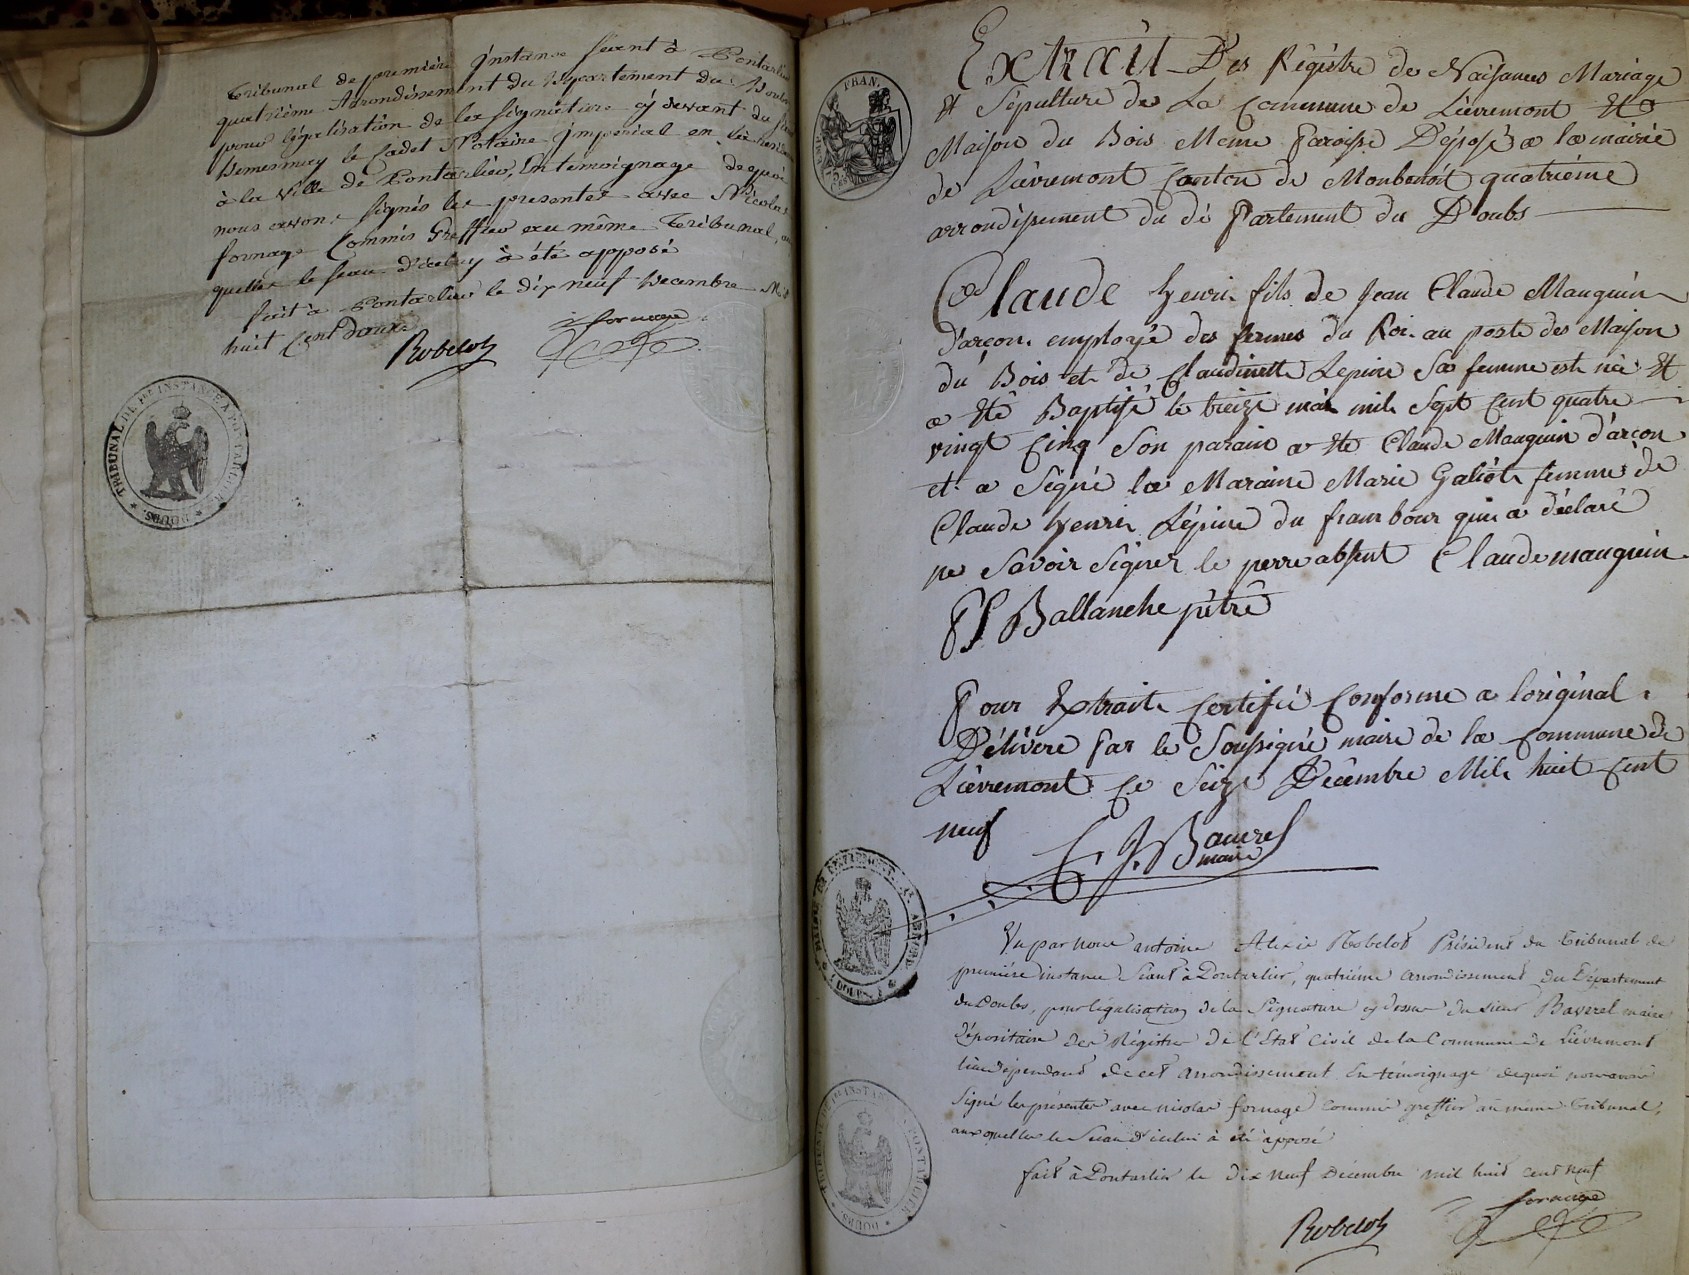 Tribunal de première jnstance seant à Pontarlier
quatrième Arrondissement du Département du Doubs
pour légalisation de la signature cy devant du sieur
Demesmay le Cadet Notaire jmpérial en la residence
à la ville de Pontarlier, En témoignage de quoi
nous avons signés les presentes avec Nicolas
fornage Commis Greffier au même Tribunal, aux
quelles le sceau d'iceluy à été apposé
fait à Pontarlier le dix neuf Decembre Mil
huit Cent
Robelot
fornage
TRIBUNAL DE 1ere INSTANCE A PONTARLIER
* DOUBS. *
Extrait Des Régistre de Naisances Mariage
et Sépulture de La Commune de Liévremont et
Maison du Bois Meme Paroisse Déposé a la mairie
de Liévremont Canton de Monbenoit quatriéme
arrondissement du dé Partement du Doubs
Claude henri fils de Jean Claude Mauguin
d'arçon employé des fermes du Roi au poste des Maison
du Bois et de Claudinette Lepine Sa femme est né et
a eté Baptisé le treize mai mil Sept Cent quatre
vingt Cinq Son parain a ete Claude Mauguin d'arçon
et a Signé la Maraine Marie Galiot femme de
Claude henri Lépine du frambour qui a déclaré
ne Savoir Signer le perre absent Claude mauguin
Ballanche pétre
Pour Extrait Certifié Conforme a loriginal
Délivere Par le Soussigné maire de la Commune de
Liévremont Ce Seize Décembre Mil huit Cent
neuf
C J Baverel
maire
Vu par nous antoine Alexis Robelot Président du Tribunal de
première instance Séant à Pontarlier, quatriéme arrondissement du Département
du Doubs, pour légalisation de la Signature cy dessus du sieur Baverel maire
Dépositaire des Régistres de l'Etat Civil de la Commune de Liévremont
lieu dépendant de cet arrondissement En témoignage de quoi nous avons
Signé les présentes avec nicolas fornage commis greffier au même Tribunal,
auxquelles le Sceau d'icelui à été apposé
fait à Pontarlier le Dix neuf Décembre mil huit cent neuf
Robelot
fornage